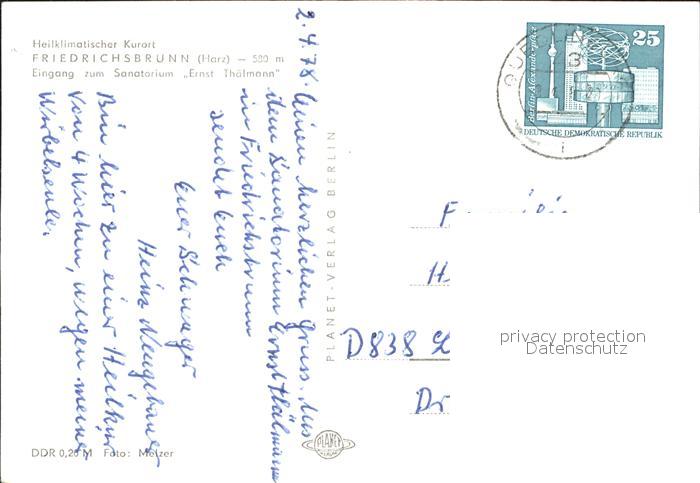 Heilklimatischer Kurort
FRIEDRICHSBRUNN (Harz) — 580 m
Eingang zum Sanatorium „Ernst Thälmann"
2.4.78.
Einen herzlichen Gruss aus
dem Sanatorium Ernst Thälmann
in Friedrichsbrunn
sendet Euch
Euer Schwager
Heinz Neugebauer
Bin hier zu einer Heilkur
von 4 Wochen, wegen meiner
Wirbelsäule.
DDR 0,20 M Foto: Melzer
PLANET-VERLAG BERLIN
PLANET
Berlin-Alexanderplatz
25
DEUTSCHE DEMOKRATISCHE REPUBLIK
Familie
H
D838 L
Dr
privacy protection
Datenschutz